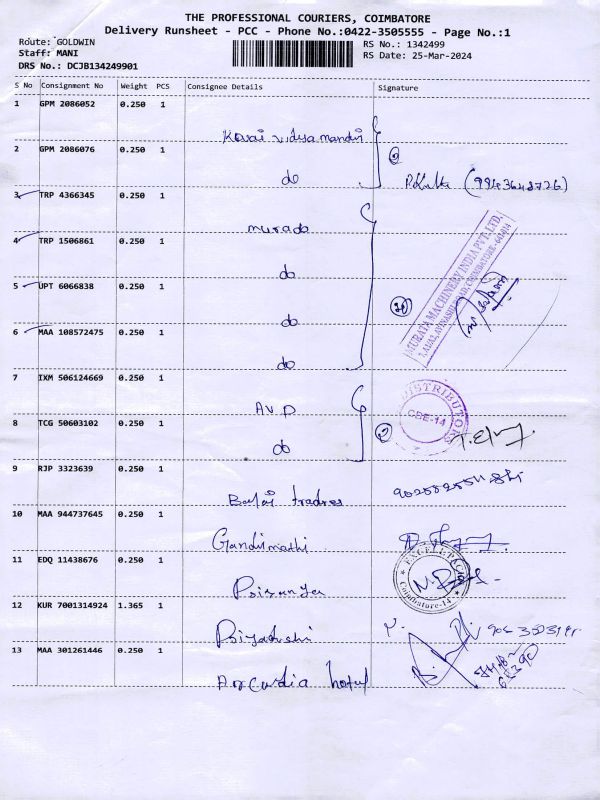 THE PROFESSIONAL COURIERS, COIMBATORE
Delivery Runsheet - PCC - Phone No.:0422-3505555 - Page No.:1
Route: GOLDWIN
RS No.: 1342499
Staff: MANI
RS Date: 25-Mar-2024
DRS No.: DCJB134249901
S No Consignment No Weight PCS Consignee Details Signature
1 GPM 2086052 0.250 1
Kovai vidya mandir
2 GPM 2086076 0.250 1
do
(9943648726)
3 TRP 4366345 0.250 1
murado
4 TRP 1506861 0.250 1
do
5 UPT 6066838 0.250 1
do
6 MAA 108572475 0.250 1
do
MURATA MACHINERY INDIA PVT. LTD.
7 IXM 506124669 0.250 1
AVP
8 TCG 50603102 0.250 1
do
DISTRIBUTORS
CBE-14
9 RJP 3323639 0.250 1
Balaji tradres
10 MAA 944737645 0.250 1
Gandimathi
11 EDQ 11438676 0.250 1
Prisanya
Coimbatore-14
12 KUR 7001314924 1.365 1
Priyadrshi
13 MAA 301261446 0.250 1
Arcardia hotul